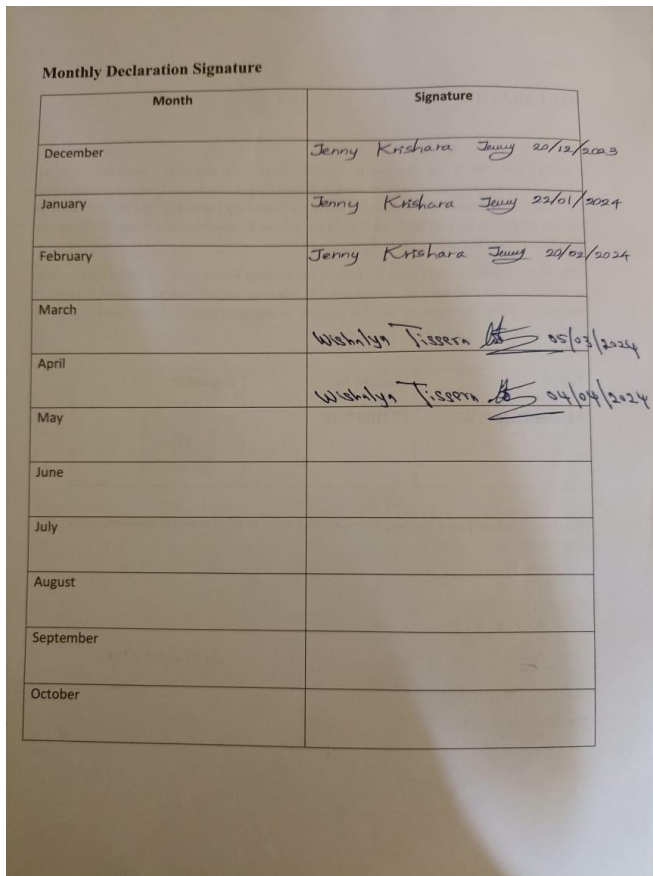 Monthly Declaration Signature
Month Signature
December Jenny Krishara Jenny 20/12/2023
January Jenny Krishara Jenny 22/01/2024
February Jenny Krishara Jenny 20/02/2024
March
Wishalya Tissera 05/03/2024
April
Wishalya Tissera 04/04/2024
May
June
July
August
September
October